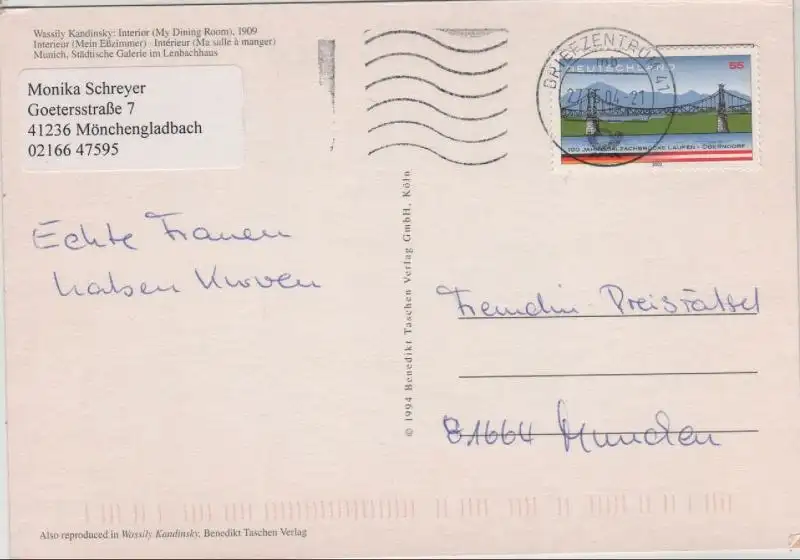 Wassily Kandinsky: Interior (My Dining Room), 1909
Interieur (Mein Eßzimmer) · Intérieur (Ma salle à manger)
Munich, Städtische Galerie im Lenbachhaus
Monika Schreyer
Goetersstraße 7
41236 Mönchengladbach
02166 47595
BRIEFZENTRUM 41
mb
-21
DEUTSCHLAND 55
100 JAHRE SALZACHBRÜCKE LAUFEN - OBERNDORF
2003
Echte Frauen
haben Kurven
© 1994 Benedikt Taschen Verlag GmbH, Köln
Freundin-Preisrätsel
81664 München
Also reproduced in Wassily Kandinsky, Benedikt Taschen Verlag